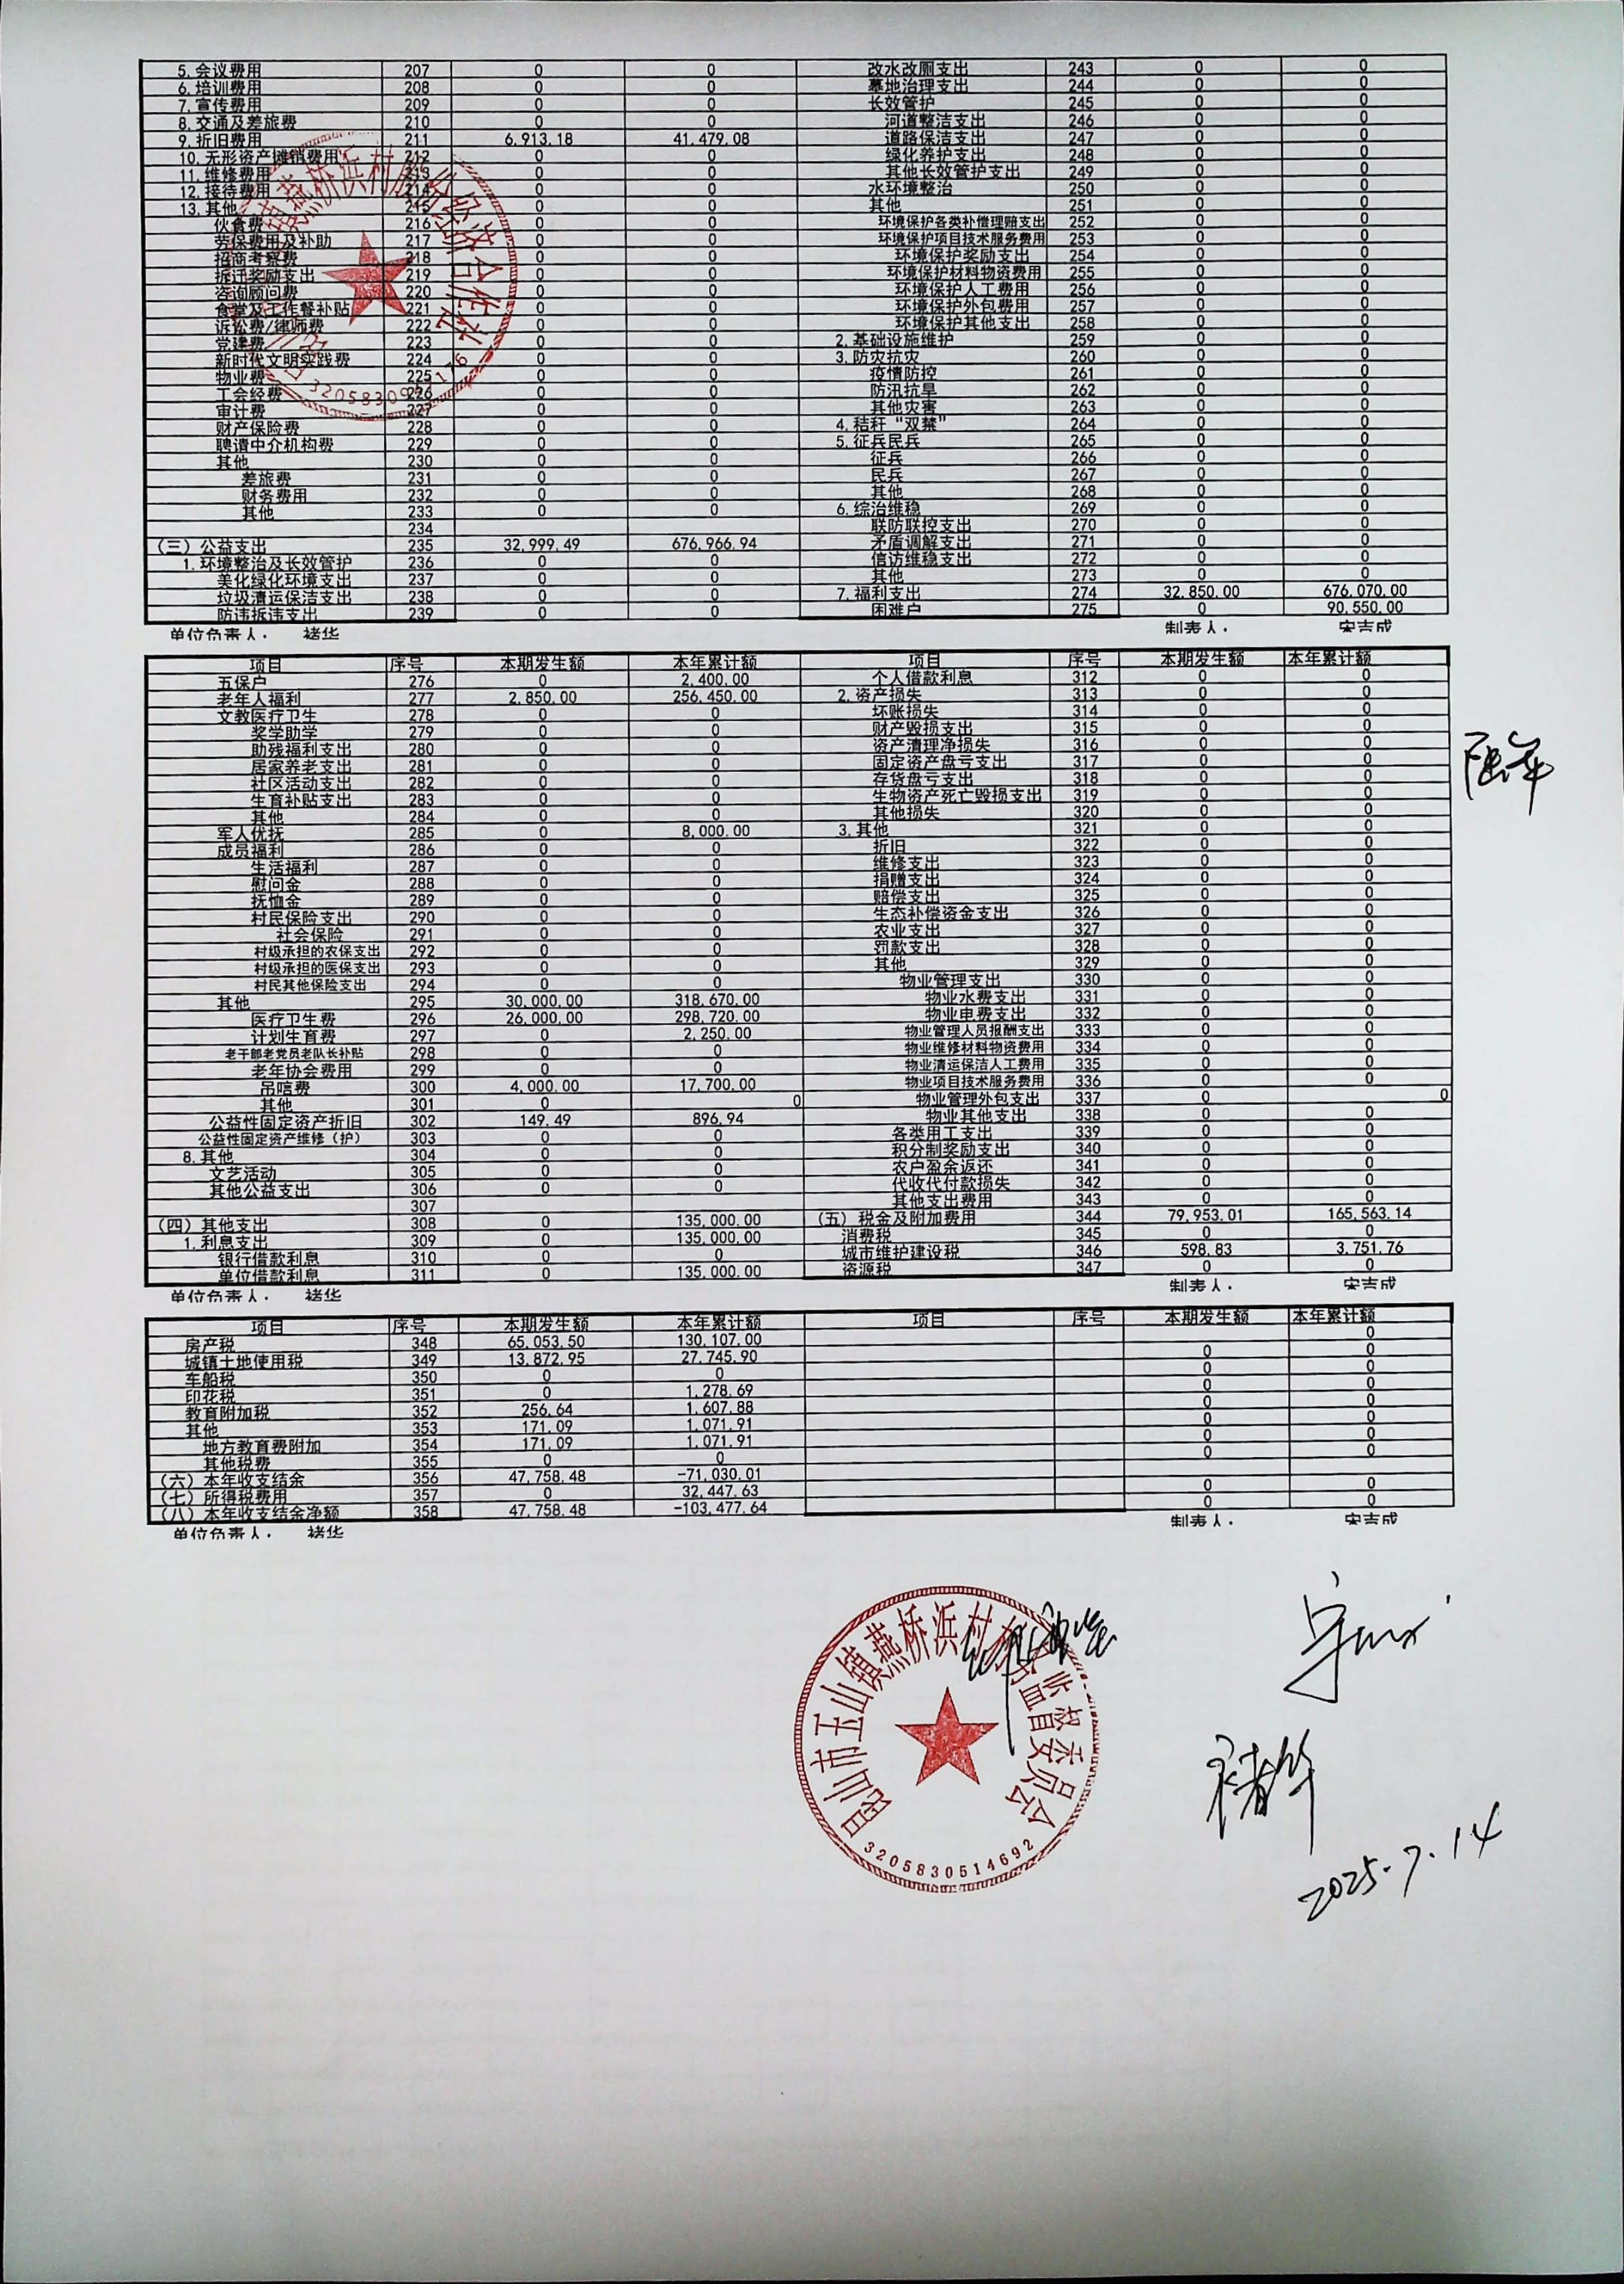 5.会议费用 207 0 0 改水改厕支出 243 0 0
6.培训费用 208 0 0 墓地治理支出 244 0 0
7.宣传费用 209 0 0 长效管护 245 0 0
8.交通及差旅费 210 0 0 河道整洁支出 246 0 0
9.折旧费用 211 6,913.18 41,479.08 道路保洁支出 247 0 0
10.无形资产摊销费用 212 0 0 绿化养护支出 248 0 0
11.维修费用 213 0 0 其他长效管护支出 249 0 0
12.接待费用 214 0 0 水环境整治 250 0 0
13.其他 215 0 0 其他 251 0 0
伙食费 216 0 0 环境保护各类补偿理赔支出 252 0 0
劳保费用及补助 217 0 0 环境保护项目技术服务费用 253 0 0
招商考察费 218 0 0 环境保护奖励支出 254 0 0
拆迁奖励支出 219 0 0 环境保护材料物资费用 255 0 0
咨询顾问费 220 0 0 环境保护人工费用 256 0 0
食堂及工作餐补贴 221 0 0 环境保护外包费用 257 0 0
诉讼费/律师费 222 0 0 环境保护其他支出 258 0 0
党建费 223 0 0 2.基础设施维护 259 0 0
新时代文明实践费 224 0 0 3.防灾抗灾 260 0 0
物业费 225 0 0 疫情防控 261 0 0
工会经费 226 0 0 防汛抗旱 262 0 0
审计费 227 0 0 其他灾害 263 0 0
财产保险费 228 0 0 4.秸秆“双禁” 264 0 0
聘请中介机构费 229 0 0 5.征兵民兵 265 0 0
其他 230 0 0 征兵 266 0 0
差旅费 231 0 0 民兵 267 0 0
财务费用 232 0 0 其他 268 0 0
其他 233 0 0 6.综治维稳 269 0 0
234 联防联控支出 270 0 0
(三)公益支出 235 32,999.49 676,966.94 矛盾调解支出 271 0 0
1.环境整治及长效管护 236 0 0 信访维稳支出 272 0 0
美化绿化环境支出 237 0 0 其他 273 0 0
垃圾清运保洁支出 238 0 0 7.福利支出 274 32,850.00 676,070.00
防违拆违支出 239 0 0 困难户 275 0 90,550.00
单位负责人: 褚华 制表人: 宋吉成
项目 序号 本期发生额 本年累计额 项目 序号 本期发生额 本年累计额
五保户 276 0 2,400.00 个人借款利息 312 0 0
老年人福利 277 2,850.00 256,450.00 2.资产损失 313 0 0
文教医疗卫生 278 0 0 坏账损失 314 0 0
奖学助学 279 0 0 财产毁损支出 315 0 0
助残福利支出 280 0 0 资产清理净损失 316 0 0
居家养老支出 281 0 0 固定资产盘亏支出 317 0 0
社区活动支出 282 0 0 存货盘亏支出 318 0 0
生育补贴支出 283 0 0 生物资产死亡毁损支出 319 0 0
其他 284 0 0 其他损失 320 0 0
军人优抚 285 0 8,000.00 3.其他 321 0 0
成员福利 286 0 0 折旧 322 0 0
生活福利 287 0 0 维修支出 323 0 0
慰问金 288 0 0 捐赠支出 324 0 0
抚恤金 289 0 0 赔偿支出 325 0 0
村民保险支出 290 0 0 生态补偿资金支出 326 0 0
社会保险 291 0 0 农业支出 327 0 0
村级承担的农保支出 292 0 0 罚款支出 328 0 0
村级承担的医保支出 293 0 0 其他 329 0 0
村民其他保险支出 294 0 0 物业管理支出 330 0 0
其他 295 30,000.00 318,670.00 物业水费支出 331 0 0
医疗卫生费 296 26,000.00 298,720.00 物业电费支出 332 0 0
计划生育费 297 0 2,250.00 物业管理人员报酬支出 333 0 0
老干部老党员老队长补贴 298 0 0 物业维修材料物资费用 334 0 0
老年协会费用 299 0 0 物业清运保洁人工费用 335 0 0
吊唁费 300 4,000.00 17,700.00 物业项目技术服务费用 336 0 0
其他 301 0 0 物业管理外包支出 337 0 0
公益性固定资产折旧 302 149.49 896.94 物业其他支出 338 0 0
公益性固定资产维修（护） 303 0 0 各类用工支出 339 0 0
8.其他 304 0 0 积分制奖励支出 340 0 0
文艺活动 305 0 0 农户盈余返还 341 0 0
其他公益支出 306 0 0 代收代付款损失 342 0 0
307 其他支出费用 343 0 0
(四)其他支出 308 0 135,000.00 (五)税金及附加费用 344 79,953.01 165,563.14
1.利息支出 309 0 135,000.00 消费税 345 0 0
银行借款利息 310 0 0 城市维护建设税 346 598.83 3,751.76
单位借款利息 311 0 135,000.00 资源税 347 0 0
单位负责人: 褚华 制表人: 宋吉成
项目 序号 本期发生额 本年累计额 项目 序号 本期发生额 本年累计额
房产税 348 65,053.50 130,107.00 0
城镇土地使用税 349 13,872.95 27,745.90 0 0
车船税 350 0 0 0 0
印花税 351 0 1,278.69 0 0
教育附加税 352 256.64 1,607.88 0 0
其他 353 171.09 1,071.91 0 0
地方教育费附加 354 171.09 1,071.91 0 0
其他税费 355 0 0 0 0
(六)本年收支结余 356 47,758.48 -71,030.01
(七)所得税费用 357 0 32,447.63 0 0
(八)本年收支结余净额 358 47,758.48 -103,477.64 0 0
单位负责人: 褚华 制表人: 宋吉成
昆山市玉山镇燕桥浜村村务监督委员会
3205830514692
褚华
2025.7.14